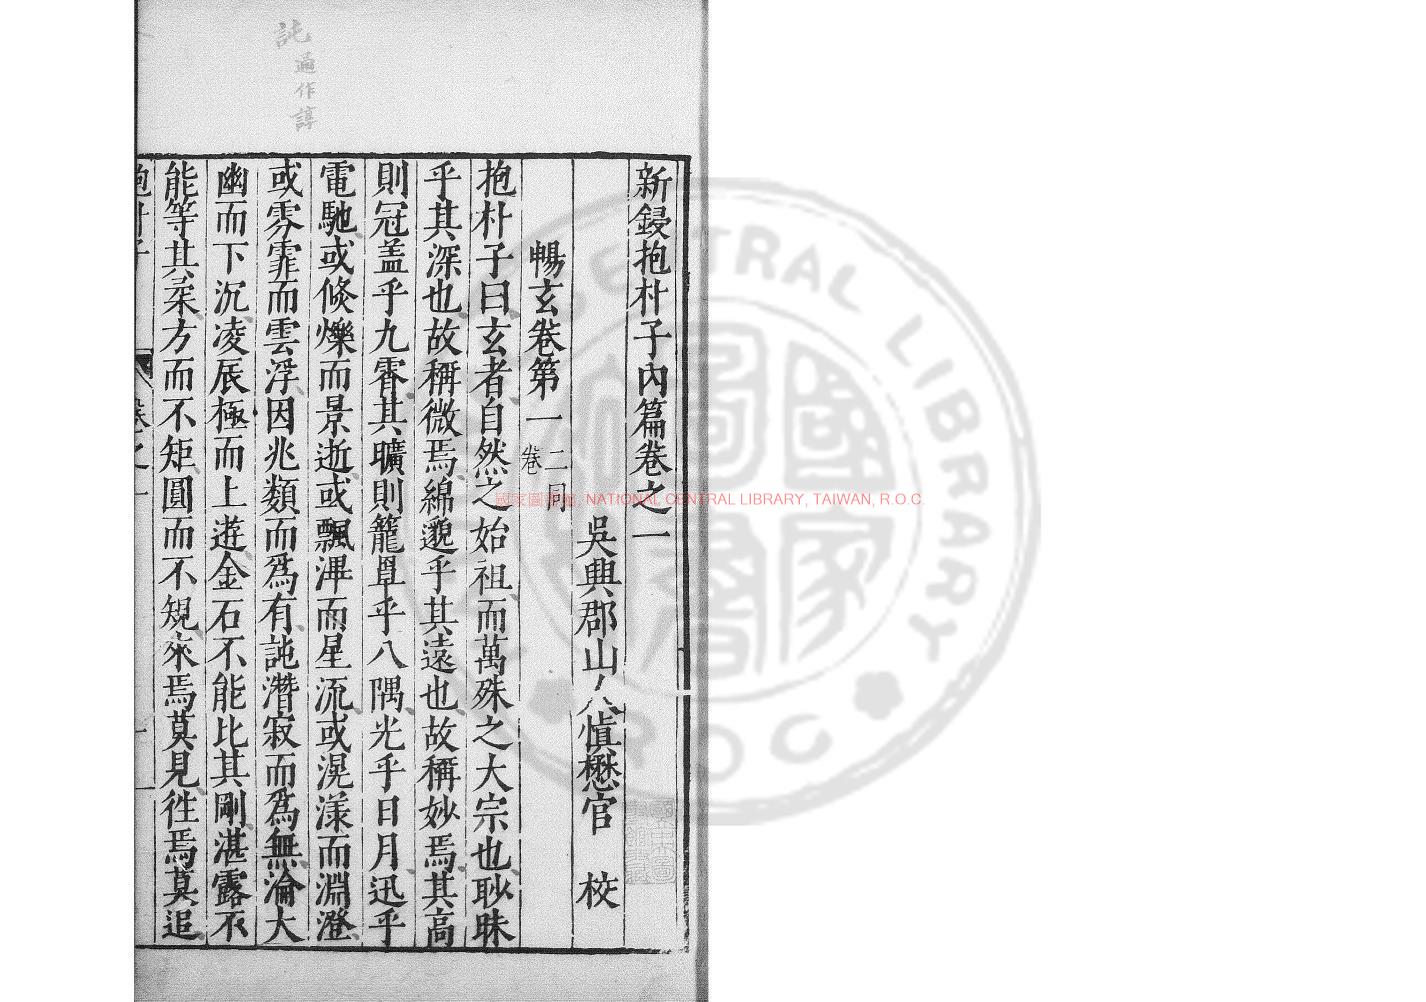 新鋟抱朴子內篇卷之一
吳興郡山人慎懋官　校
暢玄卷第一　二卷同
抱朴子曰玄者自然之始祖而萬殊之大宗也眇昧
乎其深也故稱微焉綿邈乎其遠也故稱妙焉其高
則冠盖乎九霄其曠則籠罩乎八隅光乎日月迅乎
電馳或倐爍而景逝或飄滭而星流或滉漾而淵澄
或雰霏而雲浮因兆類而爲有託潛寂而爲無淪大
幽而下沉凌辰極而上遊金石不能比其剛湛露不
能等其柔方而不矩圓而不規來焉莫見徃焉莫追
抱朴子　卷之一　一
作諄
國家圖書館, NATIONAL CENTRAL LIBRARY, TAIWAN, R.O.C.
CENTRAL LIBRARY
ROC